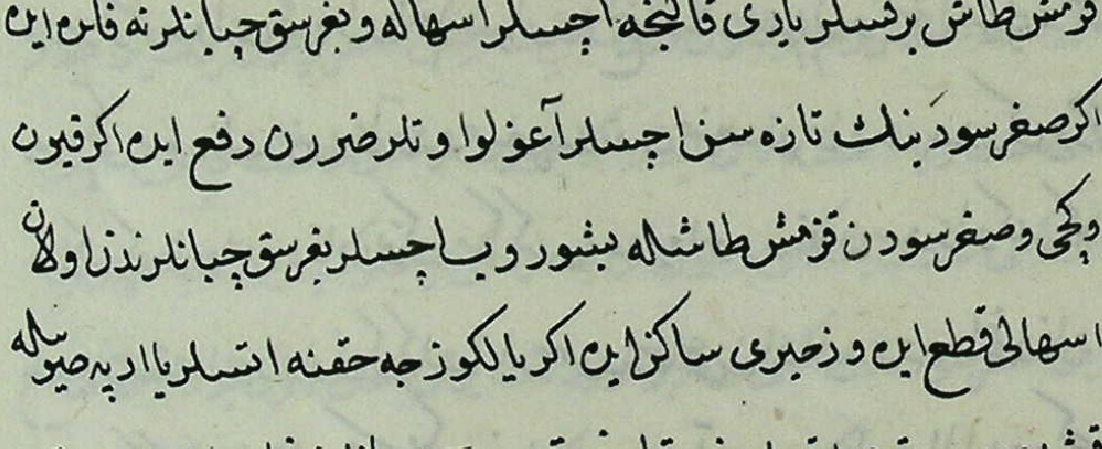 قزمش طاش برقسلر ياردى قالنجه اچسلر اسهاله و بغرسق چبانلرنه فائده ايده
اكر صغر سودَينك تازه سنى اچسلر آغولو اوتلر ضررن دفع ايده اكر قيون
و كچى و صغر سودن قزمش طاشله بشوروب اچسلر بغرسق چبانلرندن اولان
اسهالى قطع ايده و زحيرى ساكن ايده اكر يالكوزجه حقنه اتسلر يا ارپه صيوله